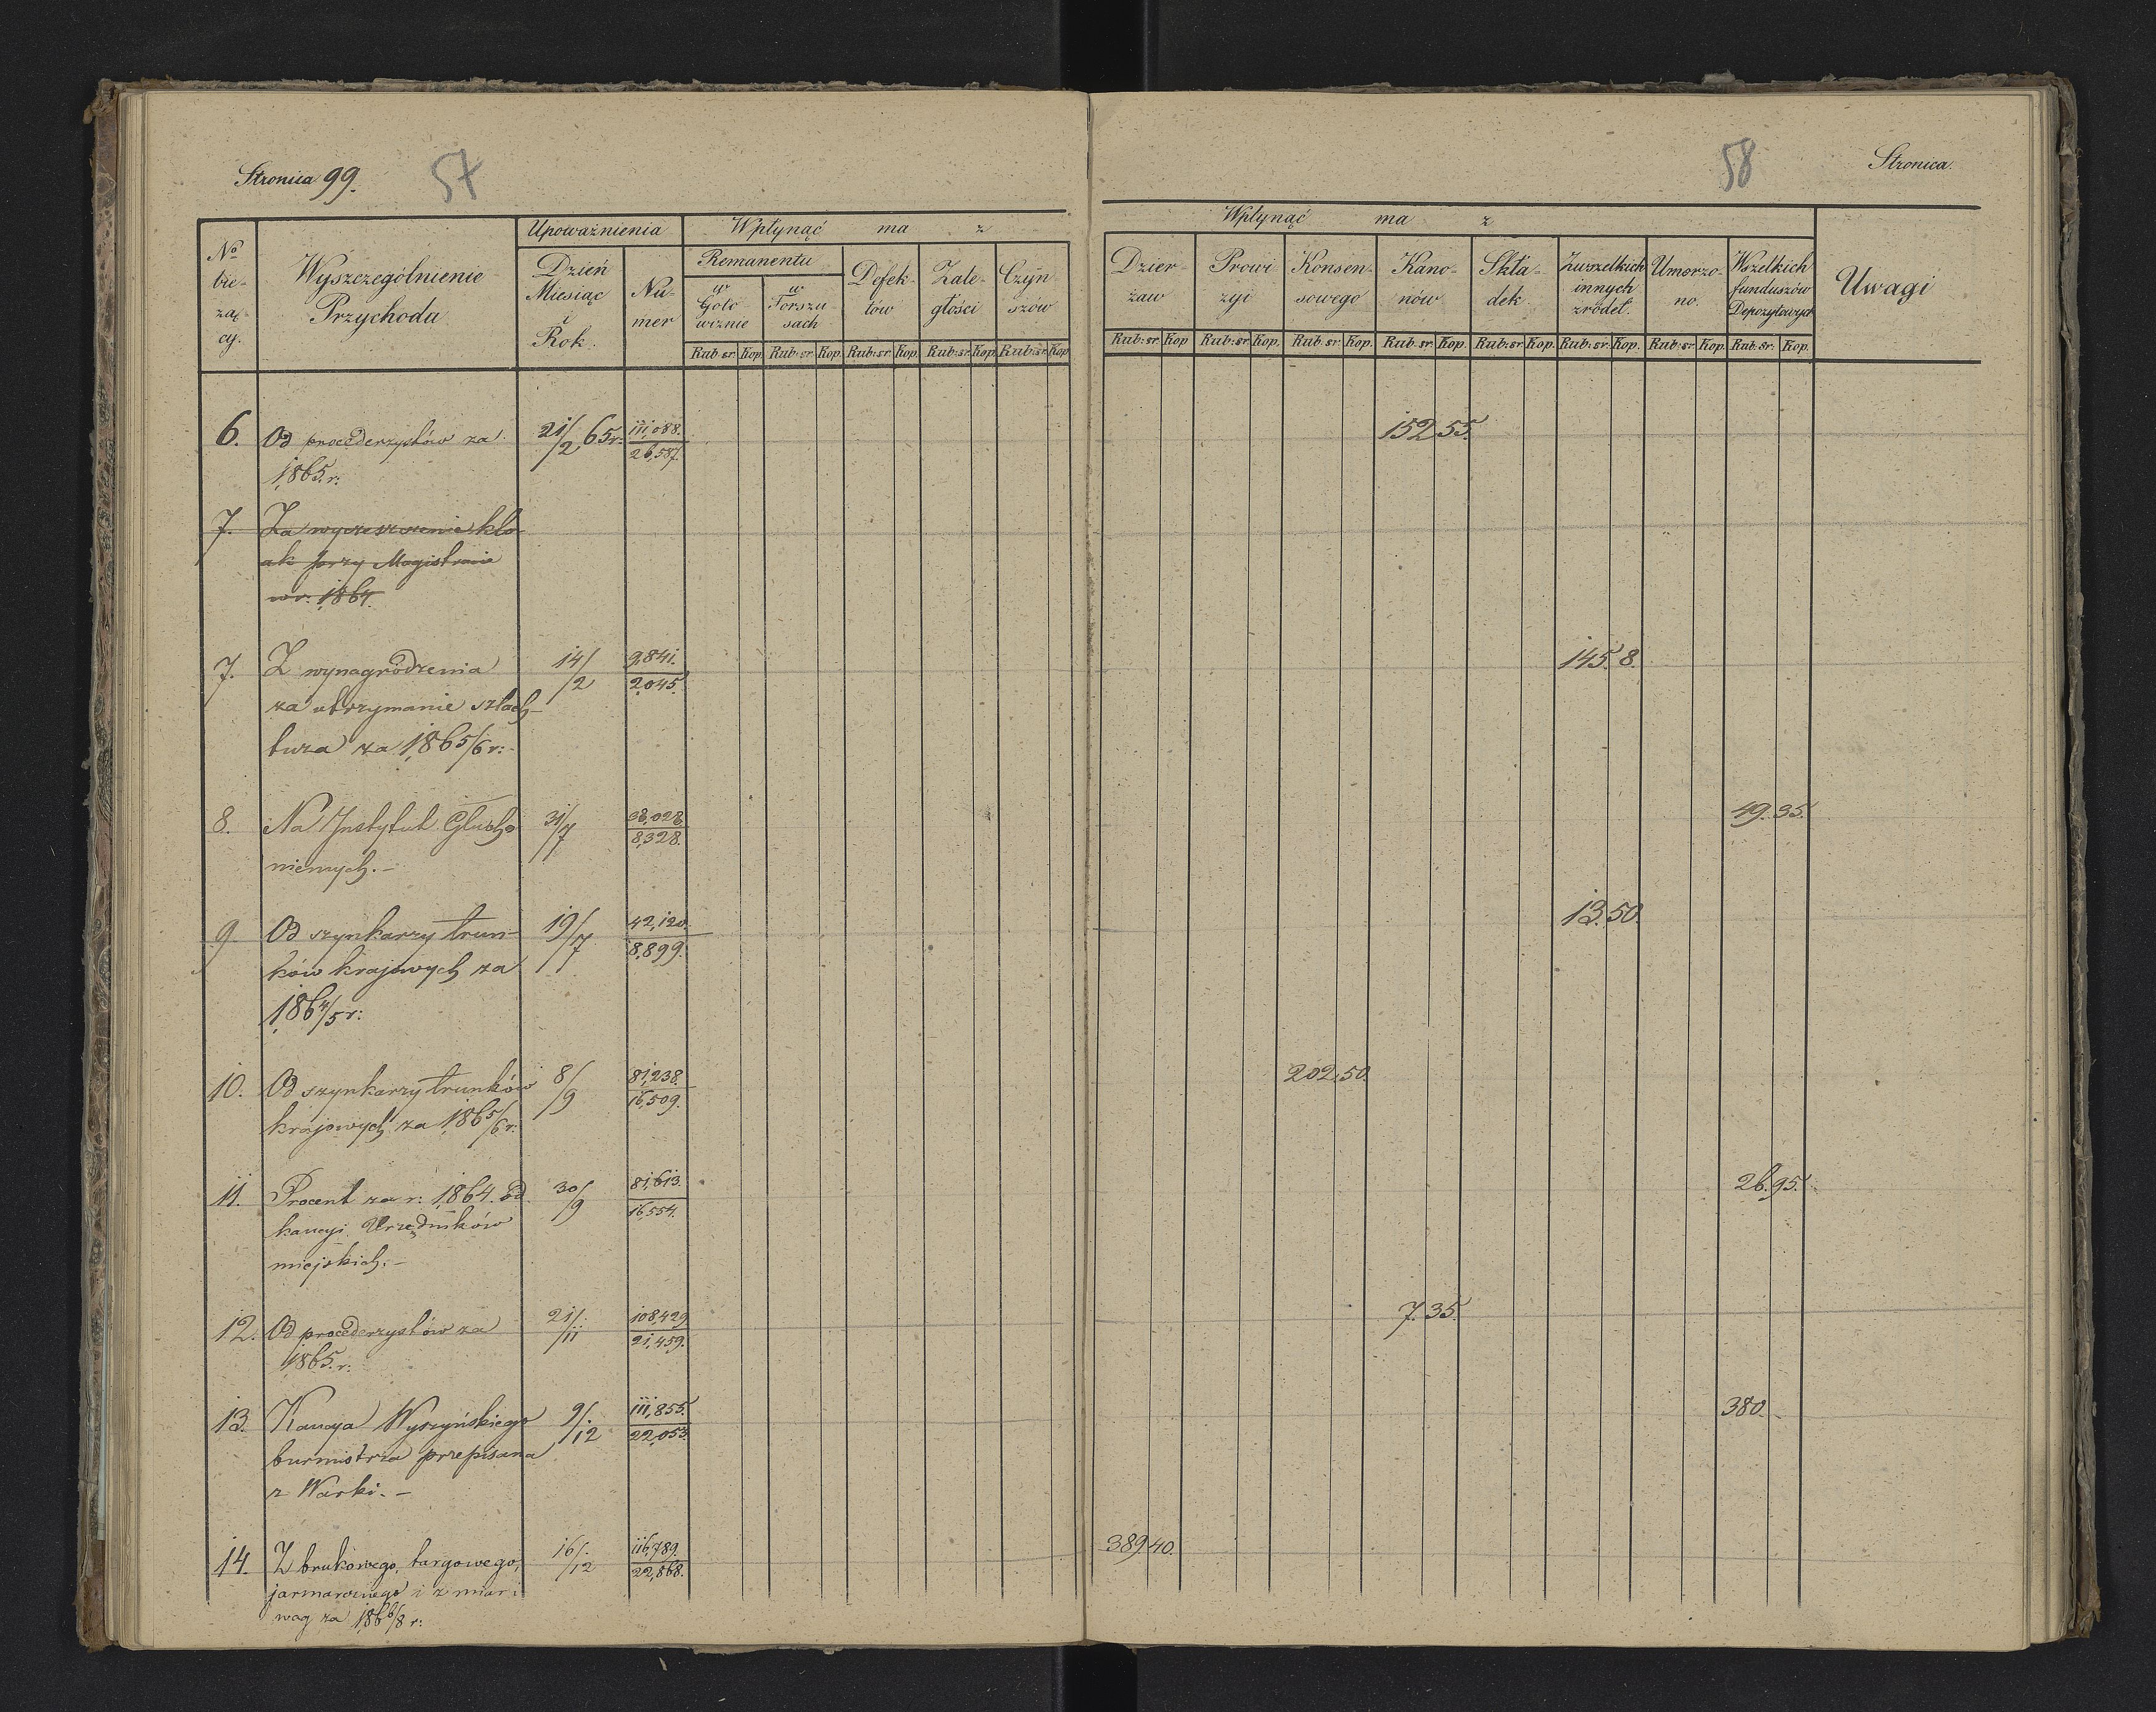 Stronica 99. 57
58 Stronica.
No bie- żą- cy.
Wyszczególnienie Przychodu
Upoważnienia
Dzień Miesiąc i Rok.
Nu- mer
Wpłynąć ma z
Remanentu
w Goto wiznie
w Forszu sach
Defek- tów
Zale- głości
Czyn- szów
Rub: sr. Kop. Rub: sr. Kop. Rub: sr. Kop. Rub: sr. Kop. Rub: sr. Kop.
Wpłynąć ma z
Dzier- żaw
Prowi zyi
Konsen- sowego
Kano- nów
Skła- dek
Zwszelkich innych źródeł.
Umorzo- no.
Wszelkich funduszów Depozytowych
Uwagi
Rub: sr. Kop Rub: sr. Kop. Rub: sr. Kop. Rub: sr. Kop. Rub: sr. Kop. Rub: sr. Kop. Rub: sr. Kop. Rub: sr. Kop.
6. Od procederzystów za 21/2 65 r. 111,088. 152 55.
1865. r: 26,587.
7. Za wyczeszczenie klo-
ak przy Magistracie
w r. 1864.
7. Z wynagrodzenia 14/2 9,841. 145. 8.
za utrzymanie szlach- 2,045.
tuza za 1865/6 r:
8. Na Instytut Głucho 31/7 38,028. 49. 35.
niemych. - 8,328.
9. Od szynkarzy trun- 19/7 42,120. 13. 50.
ków krajowych za 8,899.
1864/5 r:
10. Od szynkarzy trunków 8/9 81,238. 202. 50.
krajowych za 1865/6 r: 16,509.
11. Procent za r: 1864. od 30/9 81,613. 26. 95.
kaucyi Urzędników 16,554.
miejskich. -
12. Od procederzystów za 21/11 108,429 7. 35.
1865. r: 21,459.
13. Kaucya Wyszyńskiego 9/12 111,855. 380. -
burmistrza przepisana 22,053.
z Warki. -
14. Z brukowego, targowego, 16/12 116,789. 389 40.
jarmarcznego i z miar i 22,868.
wag za 1866/8 r: